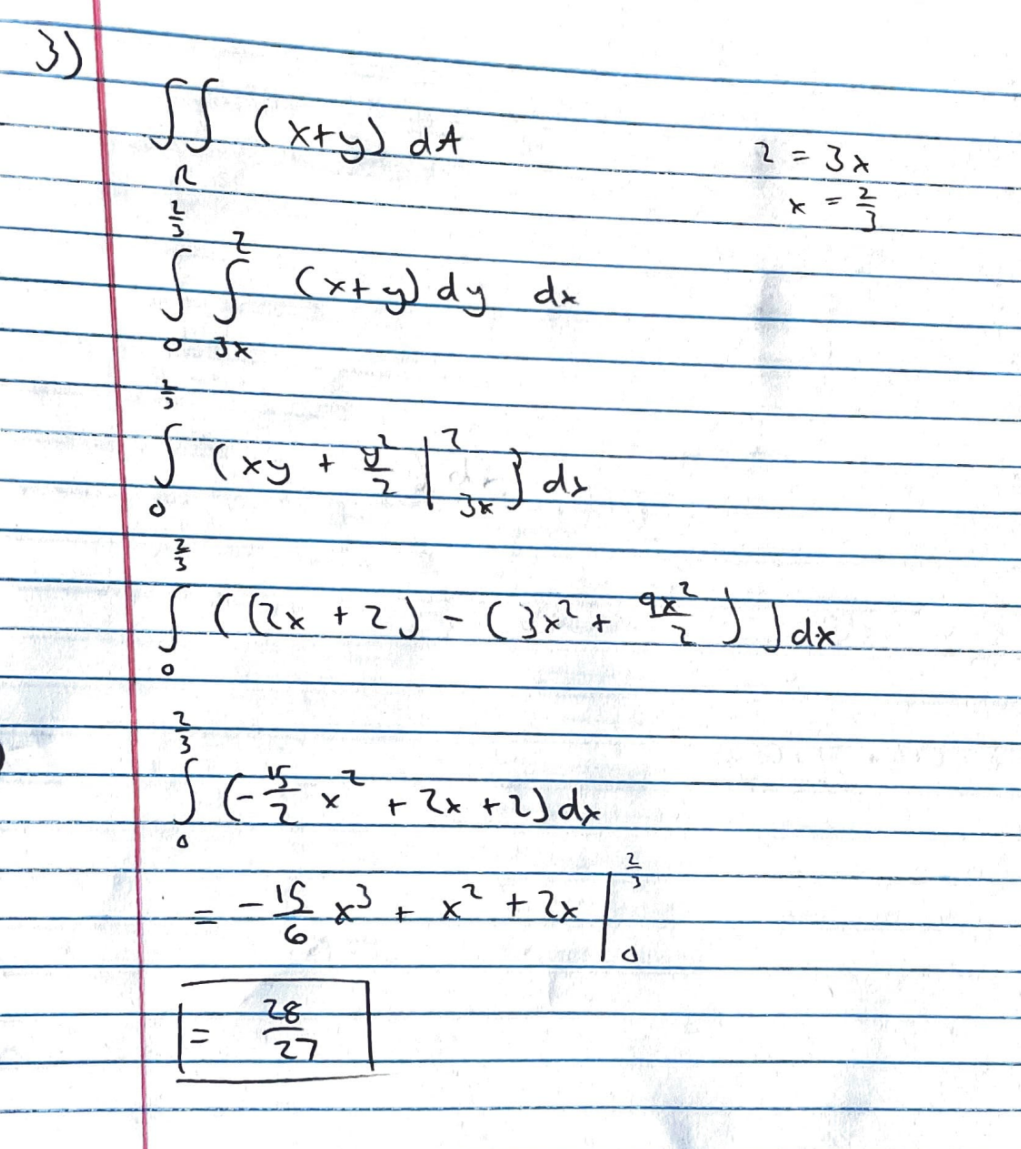 3)
∬ (x+y) dA
R
2 = 3x
x = 2/3
∫_0^{2/3} ∫_{3x}^{2} (x+y) dy dx
∫_0^{2/3} (xy + y²/2 |_{3x}^{2}) dx
∫_0^{2/3} ((2x + 2) - (3x² + 9x²/2)) dx
∫_0^{2/3} (-15/2 x² + 2x + 2) dx
= -15/6 x³ + x² + 2x |_0^{2/3}
= 28/27